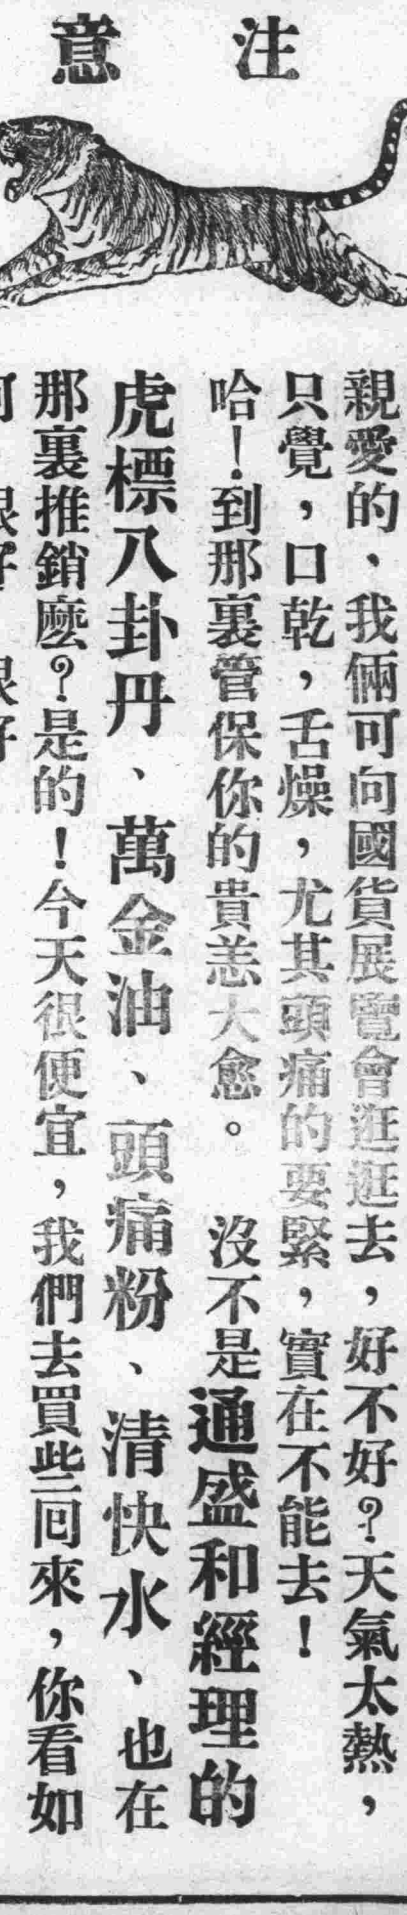 注意
親愛的、我倆可向國貨展覽會逛逛去，好不好？天氣太熱，
只覺，口乾，舌燥，尤其頭痛的要緊，實在不能去！
哈！到那裏管保你的貴恙大愈。 沒不是通盛和經理的
虎標八卦丹、萬金油、頭痛粉、清快水、也在
那裏推銷麼？是的！今天很便宜，我們去買些回來，你看如